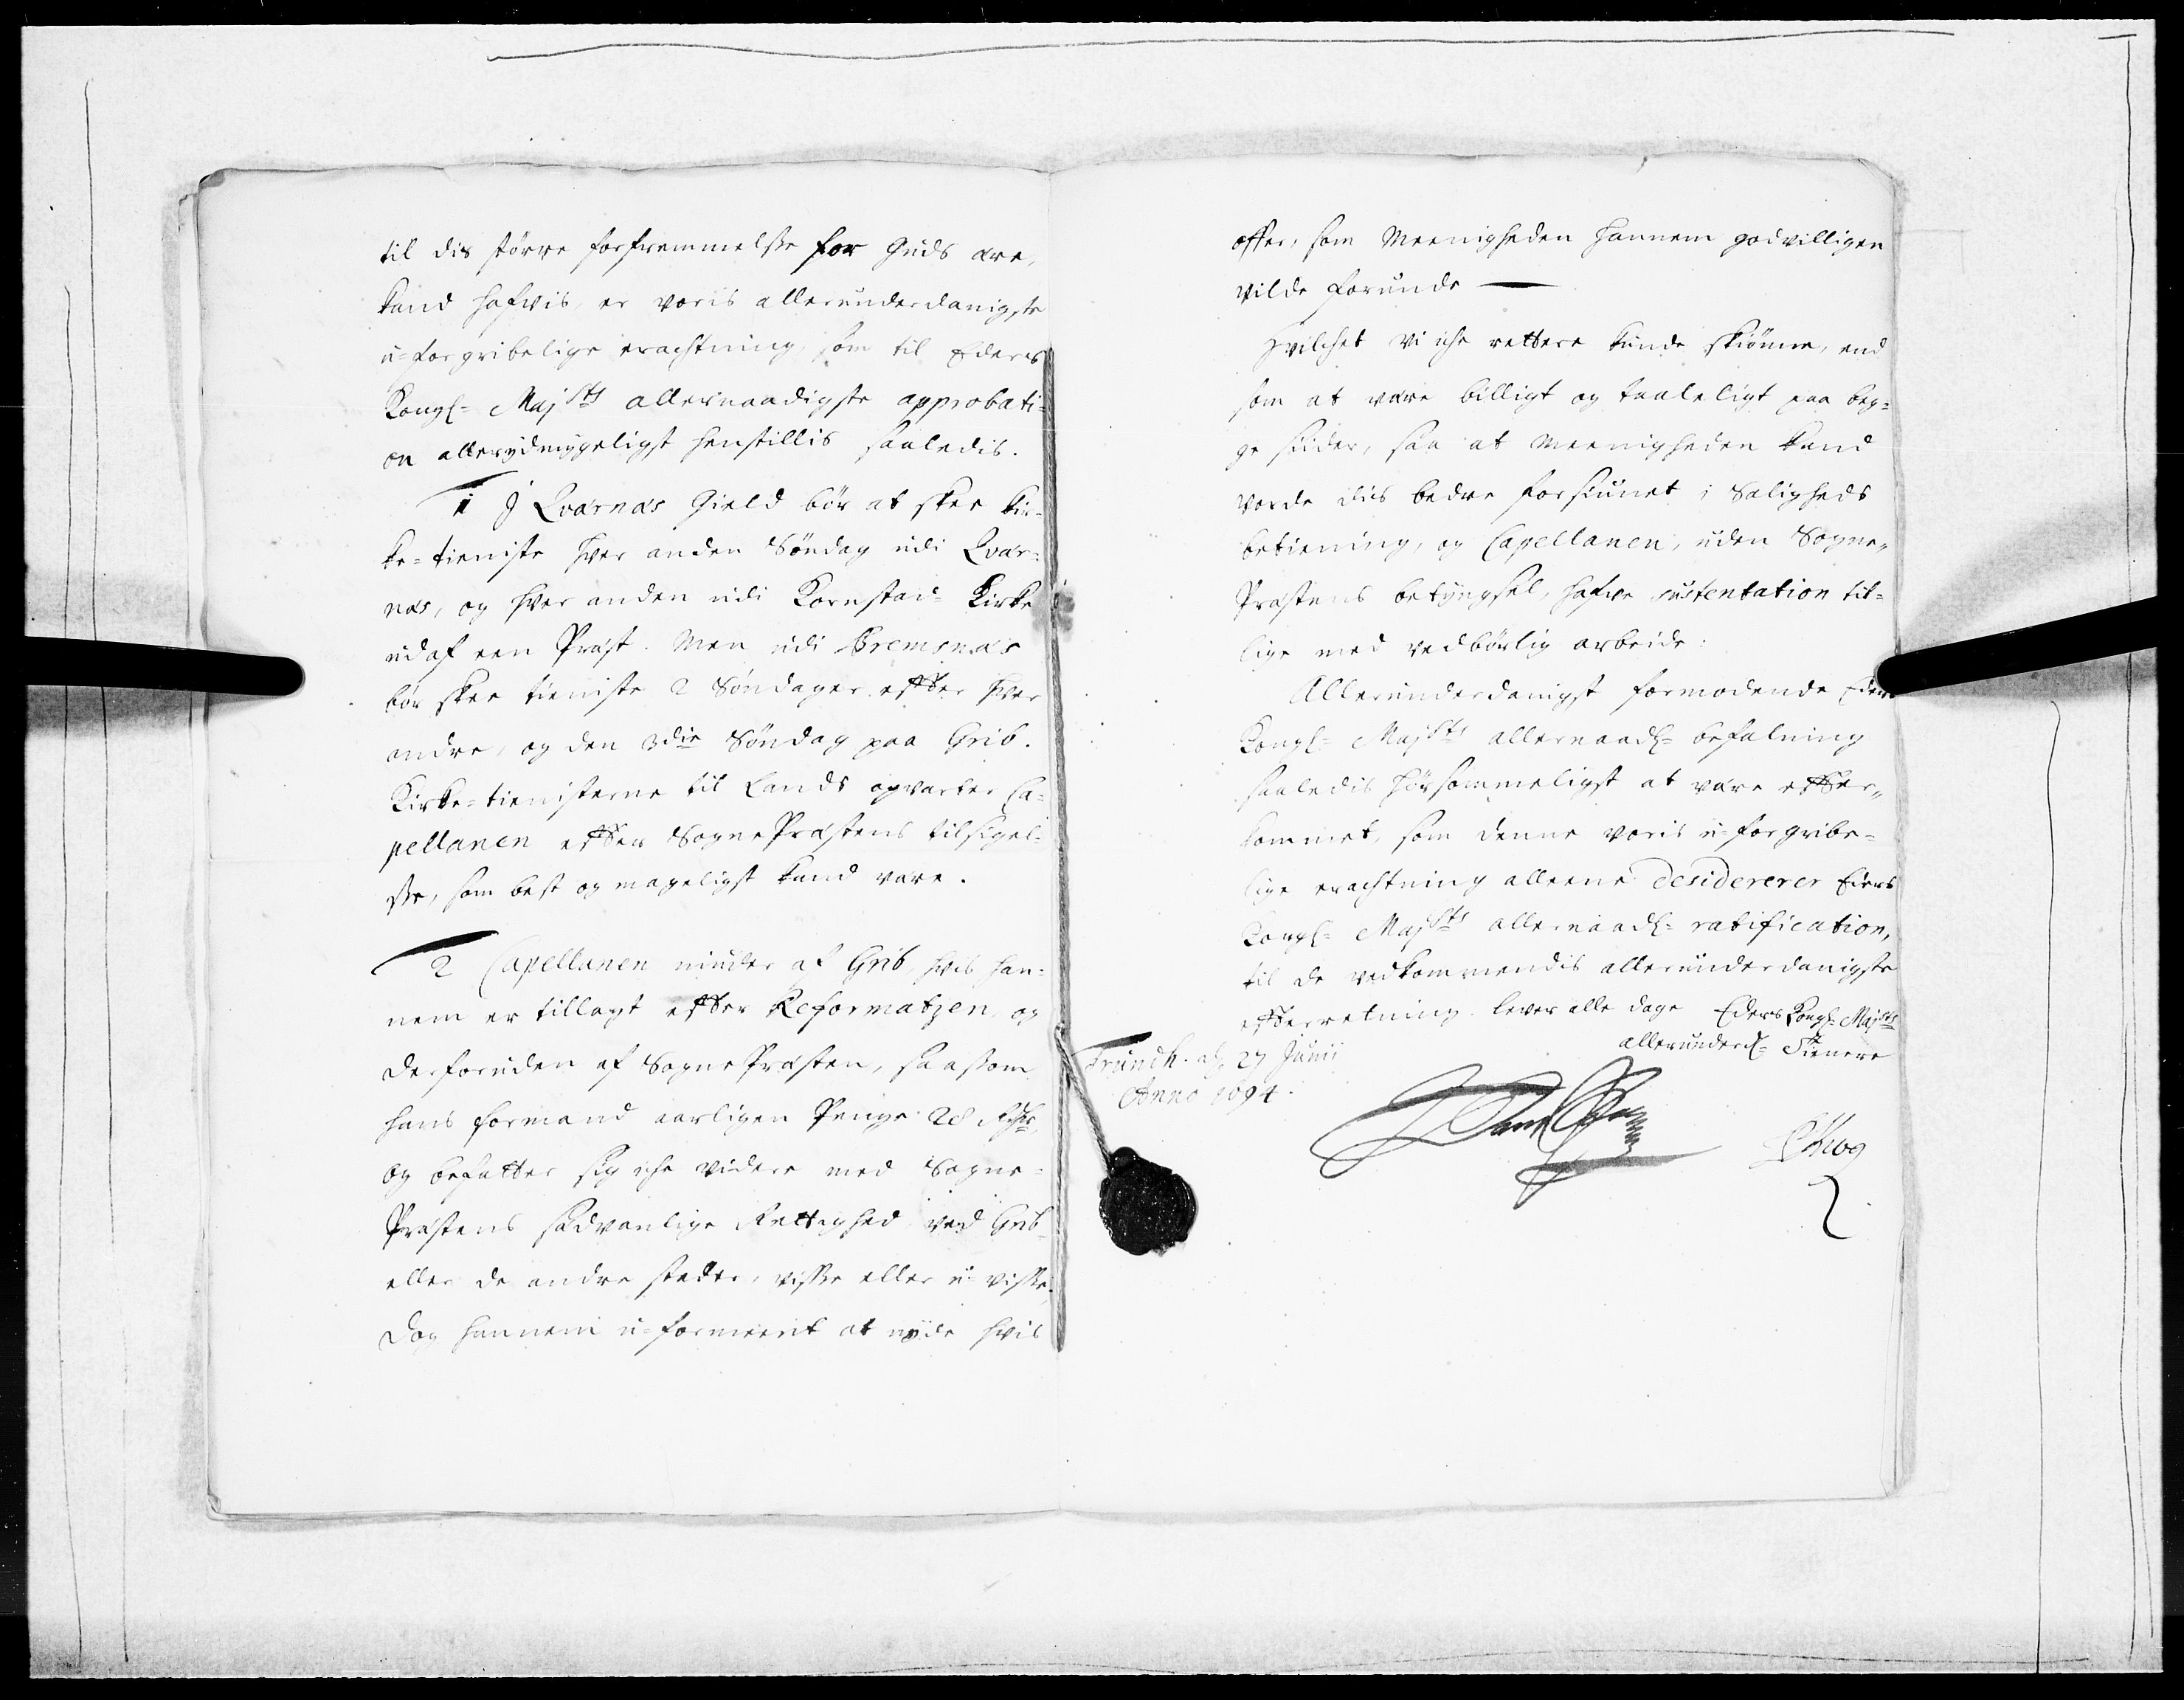 til dis större forfremmelsse for Guds ære,
kand hafvis, er voris allerunderdanigste
u-forgribelige erachtning, som til Eders
Kongl= Majsts allernaadigste approbati=
on allerydmygeligst henstillis saaledis.
1 J Qværnæs Gield bör at skee Kir=
ke=tieniste hver anden Söndag udi Qvær=
næs, og hver anden udi Kornstad= Kirke
udaf een Præst. Men udi Bremsnæs
bör skee tieniste 2 Söndager effter hver
andre, og den 3die Söndag paa Grib.
Kirke=tienisterne til Lands opvarter Ca=
pellanen effter SognePræstens tilsigel=
sse, som best og mageligst kand være.
2 Capellanen niuder af Grib, hvis han=
nem er tillagt effter Reformatzen, og
derforuden af SognePræsten, saasom
hans formand aarligen Penge 28 Rdr,
og befatter sig iche videre med Sogne=
Præstens sædvanlige Rettighed ved Grib
eller de andre steder, visse eller u-visse.
Dog hannem u=formeent at nyde hvis
offer, som Meenigheden hannem godvilligen
vilde forunde
Hvilchet vi iche rettere kunde skiönne, end
som at være billigt og taaleligt paa beg=
ge siider, saa at Meenigheden kand
vorde diis bedre forsiunet i Saligheds
betiening, og Capellanen, uden Sogne=
Præstens betyngsel, hafve sustentation til=
lige med vedbörlig arbeide:
Allerunderdanigst formodende Eders
Kongl= Majsts allernaadl= befalning
saaledis hörsommeligst at være effter=
kommet, som denne voris u=forgribe=
lige erachtning alleene desidererer Eders
Kongl= Majsts allernaadl= ratification,
til de vedkommendis allerunderdanigste
effterretning. lever alle dage Eders Kongl= Majsts
allerunderd= Tienere
Trundh. ad, 27 Junii
Anno 1694.
Krog